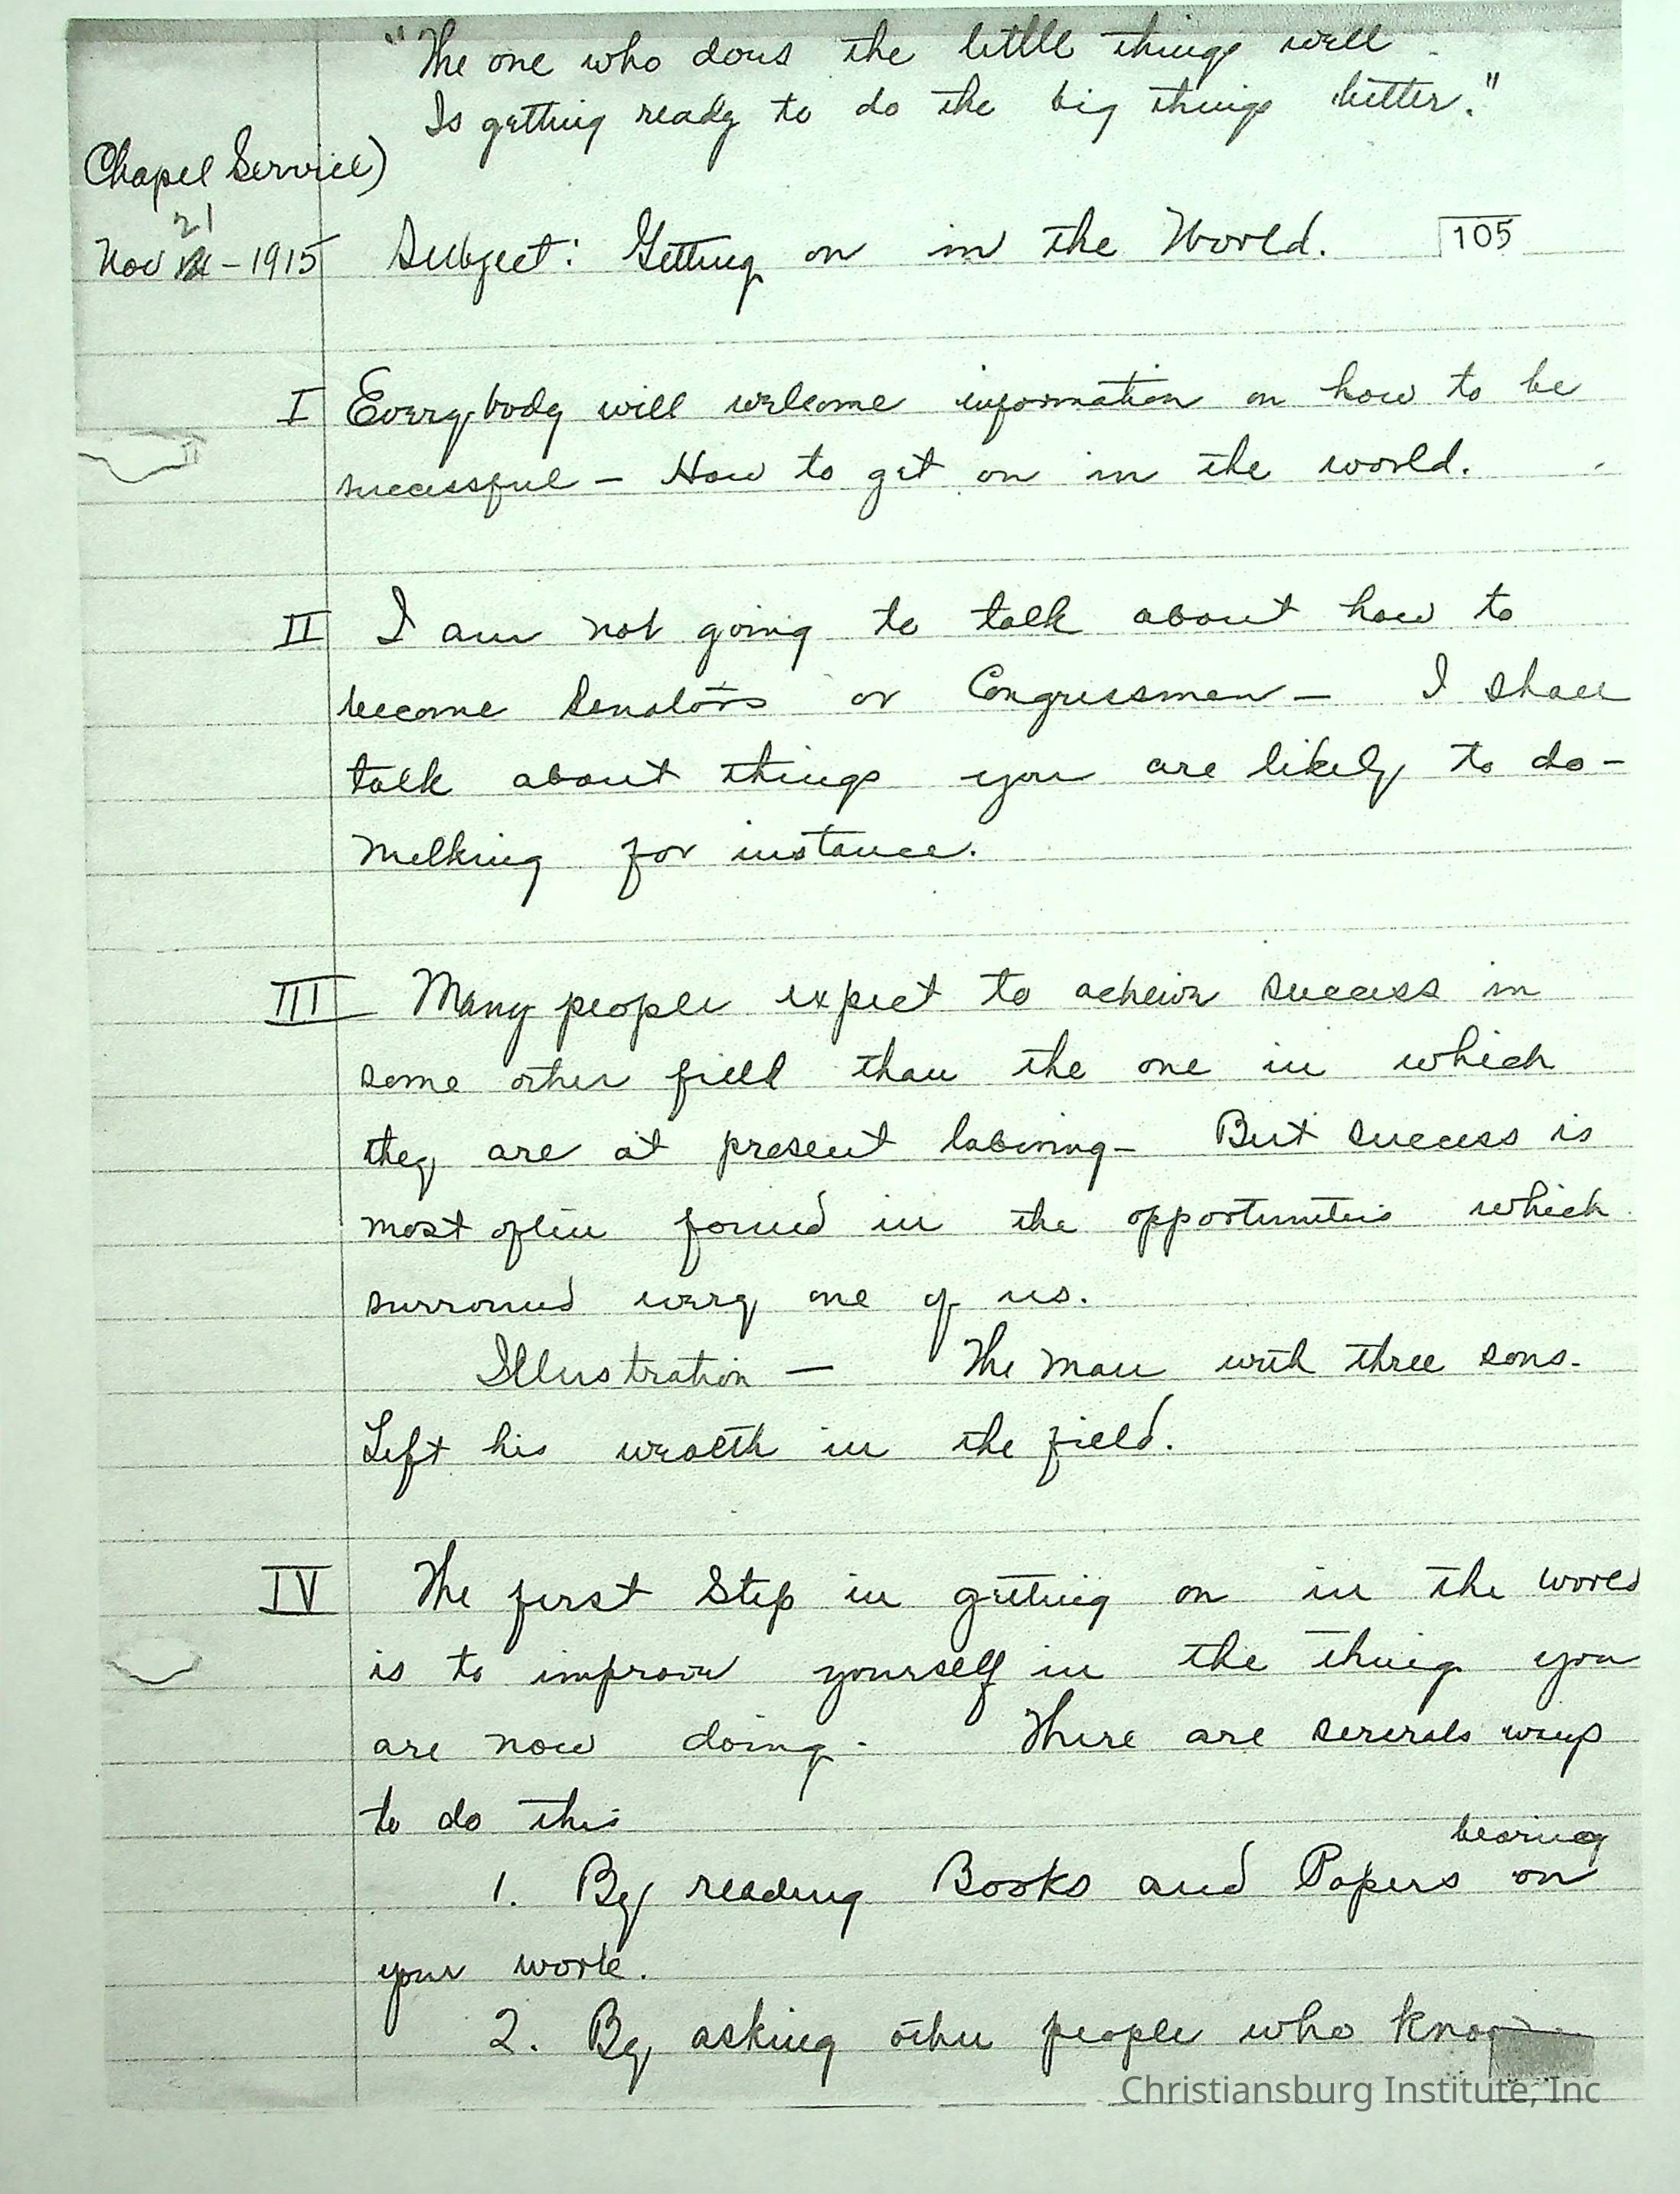 "The one who does the little things well
Is getting ready to do the big things better."
Chapel Service)
21
Nov - 1915 Subject: Getting on in the World. 105
I Everybody will welcome information on how to be
successful - How to get on in the world.
II I am not going to talk about how to
become Senators or Congressmen - I shall
talk about things you are likely to do -
Melking for instance.
III Many people expect to acheive success in
some other field than the one in which
they are at present laboring - But success is
most often found in the opportunities which
surround every one of us.
Illustration - The man with three sons.
Left his wealth in the field.
IV The first Step in getting on in the world
is to improve yourself in the things you
are now doing. There are severals ways
to do this
bearing
1. By reading Books and Papers on
your work.
2. By asking other people who know
Christiansburg Institute, Inc